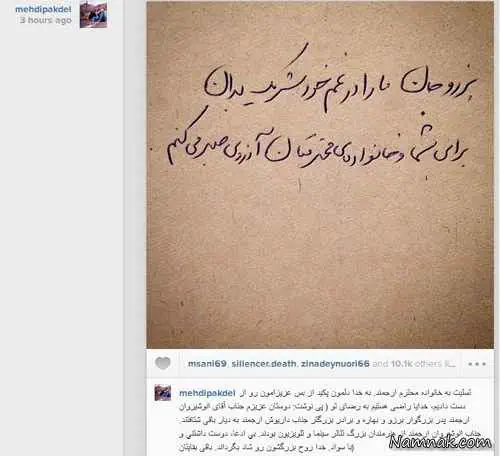 mehdipakdel
3 hours ago
برزو جان ما را در غم خود شریک بدان
برای شما و خانواده‌ی محترمتان آرزوی صبر می کنم
msani69, sillencer.death, zinadeynuori66 and 10.1k others li...
mehdipakdel تسلیت به خانواده محترم ارجمند. به خدا دلمون پکید از بس عزیزامون رو از
دست دادیم. خدایا راضی هستیم به رضای تو ( پی نوشت: دوستان عزیزم جناب آقای انوشیروان
ارجمند پدر بزرگوار برزو و بهاره و برادر بزرگتر جناب داریوش ارجمند به دیار باقی شتافتند.
جناب انوشیروان ارجمند از هنرمندان بزرگ تئاتر سینما و تلویزیون بودند. بی ادعا، دوست داشتنی و
با سواد. خدا روح بزرگشون رو شاد بگرداند. باقی بقایتان)
Namnak.com